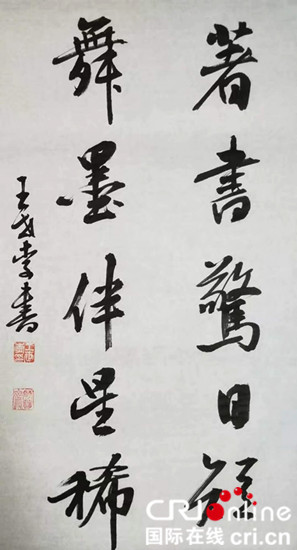 著書驚日短
舞墨伴星稀
王 書
CRIonline
国际在线 cri.cn